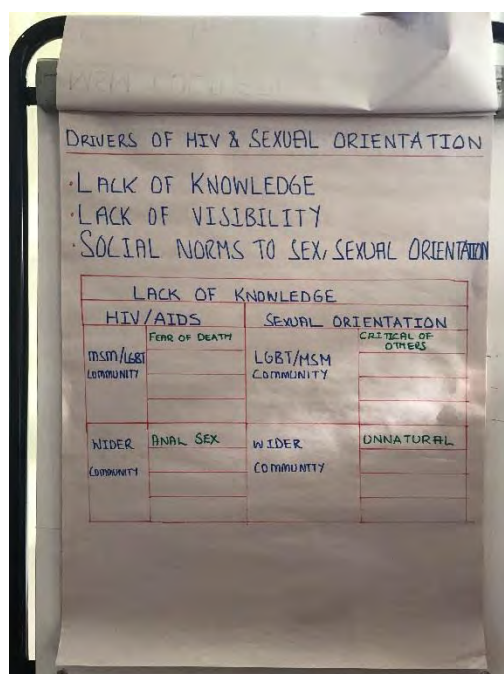 DRIVERS OF HIV & SEXUAL ORIENTATION
·LACK OF KNOWLEDGE
·LACK OF VISIBILITY
·SOCIAL NORMS TO SEX, SEXUAL ORIENTATION
LACK OF KNOWLEDGE
HIV/AIDS SEXUAL ORIENTATION
MSM/LGBT COMMUNITY
FEAR OF DEATH
LGBT/MSM COMMUNITY
CRITICAL OF OTHERS
WIDER COMMUNITY
ANAL SEX
WIDER COMMUNITY
UNNATURAL